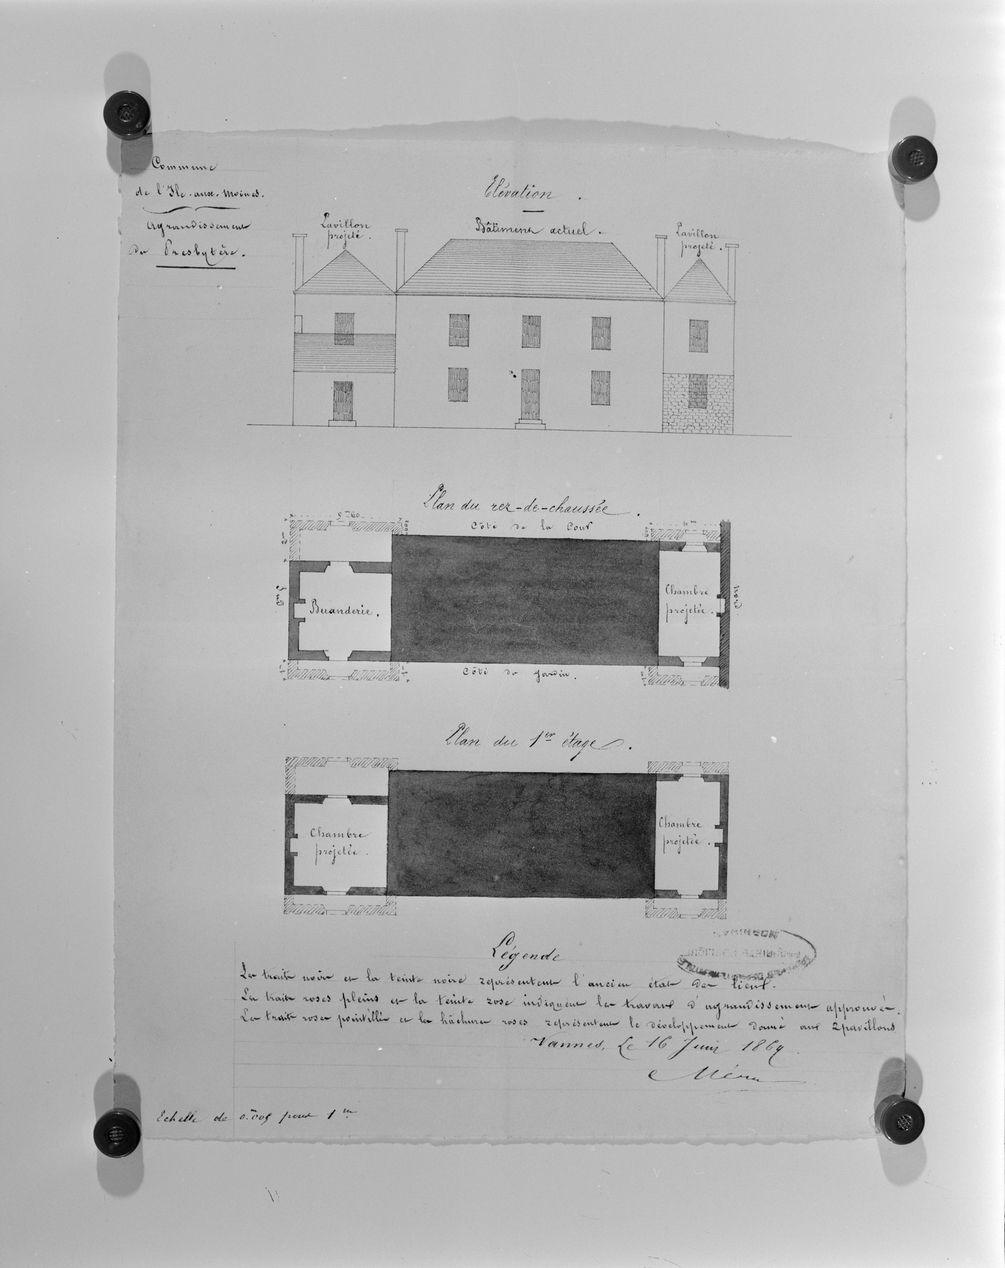 Commune
de l'Ile-aux-Moines.
Agrandissement
du Presbytère.
Elévation.
Pavillon
projeté.
Bâtiment actuel.
Pavillon
projeté.
Plan du rez-de-chaussée.
Côté de la Cour
Buanderie.
Chambre
projetée.
Côté du Jardin.
Plan du 1er étage.
Chambre
projetée.
Chambre
projetée.
Légende
Les traits noirs et la teinte noire représentent l'ancien état des lieux.
Les traits roses pleins et la teinte rose indiquent les travaux d'agrandissement approuvés.
Les traits roses pointillés et les hâchures roses représentent le développement donné aux 2 pavillons
Vannes, Le 16 Juin 1869
Echelle de 0.m005 pour 1m